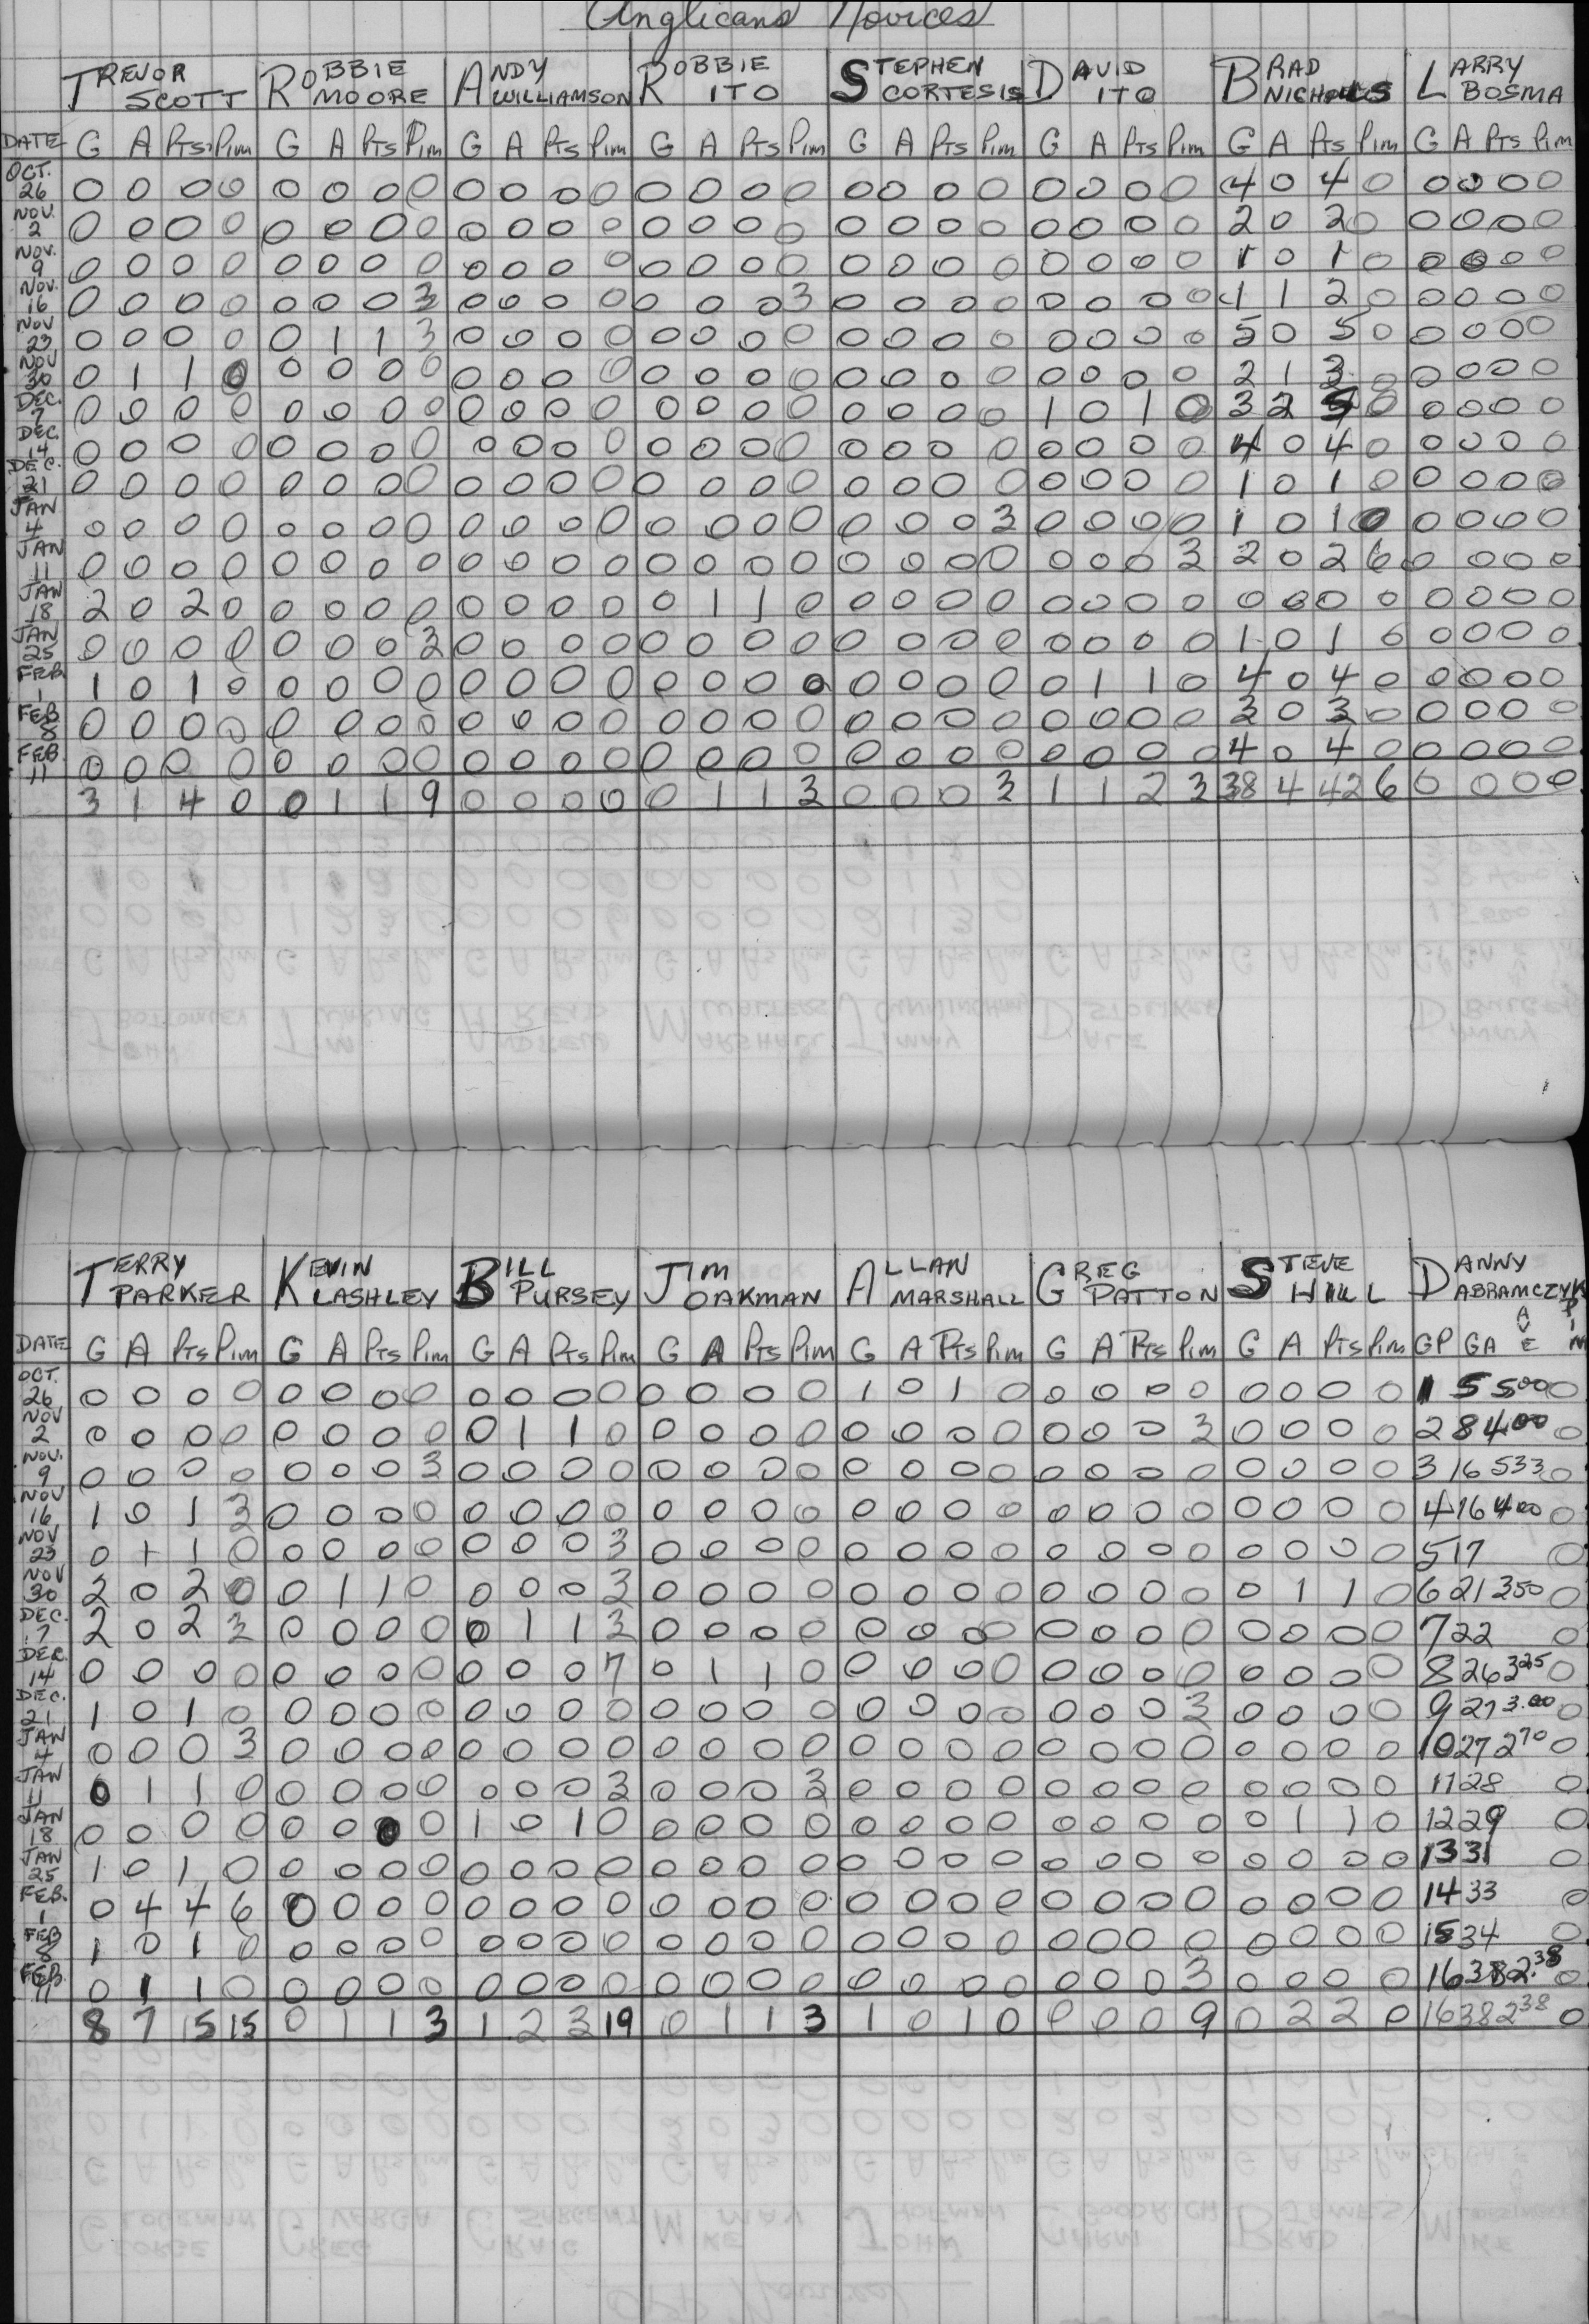 Anglicans Novices
TREVOR SCOTT ROBBIE MOORE ANDY WILLIAMSON ROBBIE ITO STEPHEN CORTESIS DAVID ITO BRAD NICHOLLS LARRY BOSMA
DATE G A Pts. Pim G A Pts Pim G A Pts Pim G A Pts Pim G A Pts Pim G A Pts Pim G A Pts Pim G A Pts Pim
OCT. 26 0 0 0 0 0 0 0 0 0 0 0 0 0 0 0 0 0 0 0 0 0 0 0 0 4 0 4 0 0 0 0 0
NOV. 2 0 0 0 0 0 0 0 0 0 0 0 0 0 0 0 0 0 0 0 0 0 0 0 0 2 0 2 0 0 0 0 0
NOV. 9 0 0 0 0 0 0 0 0 0 0 0 0 0 0 0 0 0 0 0 0 0 0 0 0 1 0 1 0 0 0 0 0
NOV. 16 0 0 0 0 0 0 0 3 0 0 0 0 0 0 0 3 0 0 0 0 0 0 0 0 1 1 2 0 0 0 0 0
NOV 23 0 0 0 0 0 1 1 3 0 0 0 0 0 0 0 0 0 0 0 0 0 0 0 0 5 0 5 0 0 0 0 0
NOV 30 0 1 1 0 0 0 0 0 0 0 0 0 0 0 0 0 0 0 0 0 0 0 0 0 2 1 3 0 0 0 0 0
DEC. 7 0 0 0 0 0 0 0 0 0 0 0 0 0 0 0 0 0 0 0 0 1 0 1 0 3 2 5 0 0 0 0 0
DEC. 14 0 0 0 0 0 0 0 0 0 0 0 0 0 0 0 0 0 0 0 0 0 0 0 0 4 0 4 0 0 0 0 0
DEC. 21 0 0 0 0 0 0 0 0 0 0 0 0 0 0 0 0 0 0 0 0 0 0 0 0 1 0 1 0 0 0 0 0
JAN 4 0 0 0 0 0 0 0 0 0 0 0 0 0 0 0 0 0 0 0 3 0 0 0 0 1 0 1 0 0 0 0 0
JAN 11 0 0 0 0 0 0 0 0 0 0 0 0 0 0 0 0 0 0 0 0 0 0 0 3 2 0 2 6 0 0 0 0
JAN 18 2 0 2 0 0 0 0 0 0 0 0 0 0 1 1 0 0 0 0 0 0 0 0 0 0 0 0 0 0 0 0 0
JAN 25 0 0 0 0 0 0 0 3 0 0 0 0 0 0 0 0 0 0 0 0 0 0 0 0 1 0 1 0 0 0 0 0
FEB. 1 1 0 1 0 0 0 0 0 0 0 0 0 0 0 0 0 0 0 0 0 0 1 1 0 4 0 4 0 0 0 0 0
FEB 8 0 0 0 0 0 0 0 0 0 0 0 0 0 0 0 0 0 0 0 0 0 0 0 0 3 0 3 0 0 0 0 0
FEB 11 0 0 0 0 0 0 0 0 0 0 0 0 0 0 0 0 0 0 0 0 0 0 0 0 4 0 4 0 0 0 0 0
3 1 4 0 0 1 1 9 0 0 0 0 0 1 1 3 0 0 0 3 1 1 2 3 38 4 42 6 0 0 0 0
TERRY PARKER KEVIN LASHLEY BILL PURSEY JIM OAKMAN ALLAN MARSHALL GREG PATTON STEVE HILL DANNY ABRAMCZYK
DATE G A Pts Pim G A Pts Pim G A Pts Pim G A Pts Pim G A Pts Pim G A Pts Pim G A Pts Pim GP GA AVE PIM
OCT. 26 0 0 0 0 0 0 0 0 0 0 0 0 0 0 0 0 1 0 1 0 0 0 0 0 0 0 0 0 1 5 500 0
NOV 2 0 0 0 0 0 0 0 0 0 1 1 0 0 0 0 0 0 0 0 0 0 0 0 3 0 0 0 0 2 8 400 0
NOV. 9 0 0 0 0 0 0 0 3 0 0 0 0 0 0 0 0 0 0 0 0 0 0 0 0 0 0 0 0 3 16 533 0
NOV 16 1 0 1 3 0 0 0 0 0 0 0 0 0 0 0 0 0 0 0 0 0 0 0 0 0 0 0 0 4 16 400 0
NOV 23 0 1 1 0 0 0 0 0 0 0 0 3 0 0 0 0 0 0 0 0 0 0 0 0 0 0 0 0 5 17 0
NOV 30 2 0 2 0 0 1 1 0 0 0 0 3 0 0 0 0 0 0 0 0 0 0 0 0 0 1 1 0 6 21 350 0
DEC. 7 2 0 2 3 0 0 0 0 0 1 1 3 0 0 0 0 0 0 0 0 0 0 0 0 0 0 0 0 7 22 0
DEC. 14 0 0 0 0 0 0 0 0 0 0 0 7 0 1 1 0 0 0 0 0 0 0 0 0 0 0 0 0 8 26 325 0
DEC. 21 1 0 1 0 0 0 0 0 0 0 0 0 0 0 0 0 0 0 0 0 0 0 0 3 0 0 0 0 9 27 3.00 0
JAN 4 0 0 0 3 0 0 0 0 0 0 0 0 0 0 0 0 0 0 0 0 0 0 0 0 0 0 0 0 10 27 270 0
JAN 11 0 1 1 0 0 0 0 0 0 0 0 3 0 0 0 3 0 0 0 0 0 0 0 0 0 0 0 0 11 28 0
JAN 18 0 0 0 0 0 0 0 0 1 0 1 0 0 0 0 0 0 0 0 0 0 0 0 0 0 1 1 0 12 29 0
JAN 25 1 0 1 0 0 0 0 0 0 0 0 0 0 0 0 0 0 0 0 0 0 0 0 0 0 0 0 0 13 31 0
FEB. 1 0 4 4 6 0 0 0 0 0 0 0 0 0 0 0 0 0 0 0 0 0 0 0 0 0 0 0 0 14 33 0
FEB 8 1 0 1 0 0 0 0 0 0 0 0 0 0 0 0 0 0 0 0 0 0 0 0 0 0 0 0 0 15 34 0
FEB. 11 0 1 1 0 0 0 0 0 0 0 0 0 0 0 0 0 0 0 0 0 0 0 0 3 0 0 0 0 16 38 2.38 0
8 7 15 15 0 1 1 3 1 2 3 19 0 1 1 3 1 0 1 0 0 0 0 9 0 2 2 0 16 38 238 0